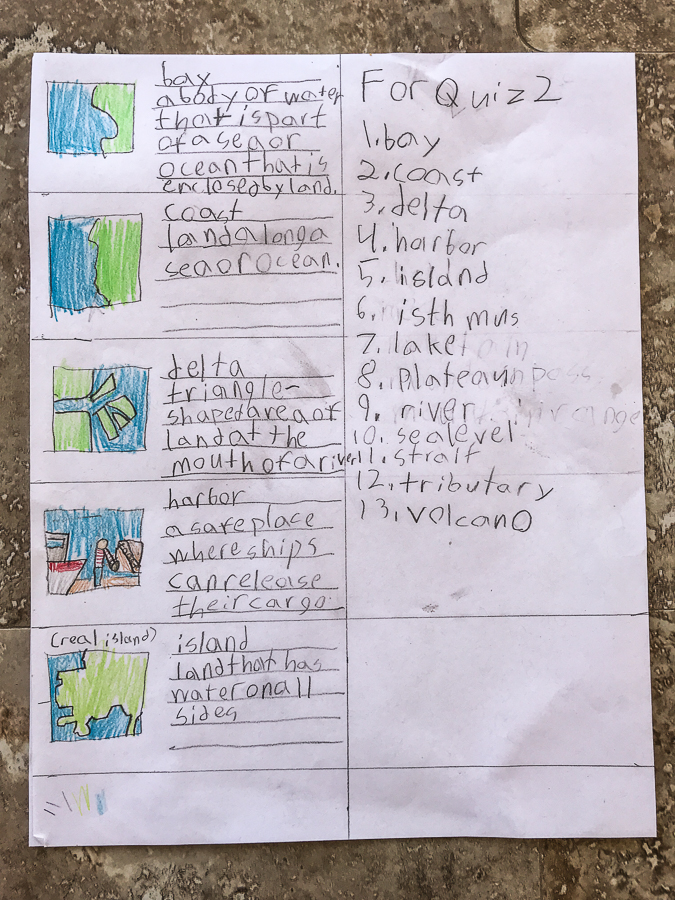 bay
a body of water
that is part
of a sea or
ocean that is
enclosed by land.
coast
land along a
sea or ocean.
delta
triangle-
shaped area of
land at the
mouth of a river
harbor
a safe place
where ships
can release
their cargo.
(real island)
island
land that has
water on all
sides
For Quiz 2
1. bay
2. coast
3. delta
4. harbor
5. island
6. isthmus
7. lake
8. plateau
9. river
10. sea level
11. strait
12. tributary
13. volcano